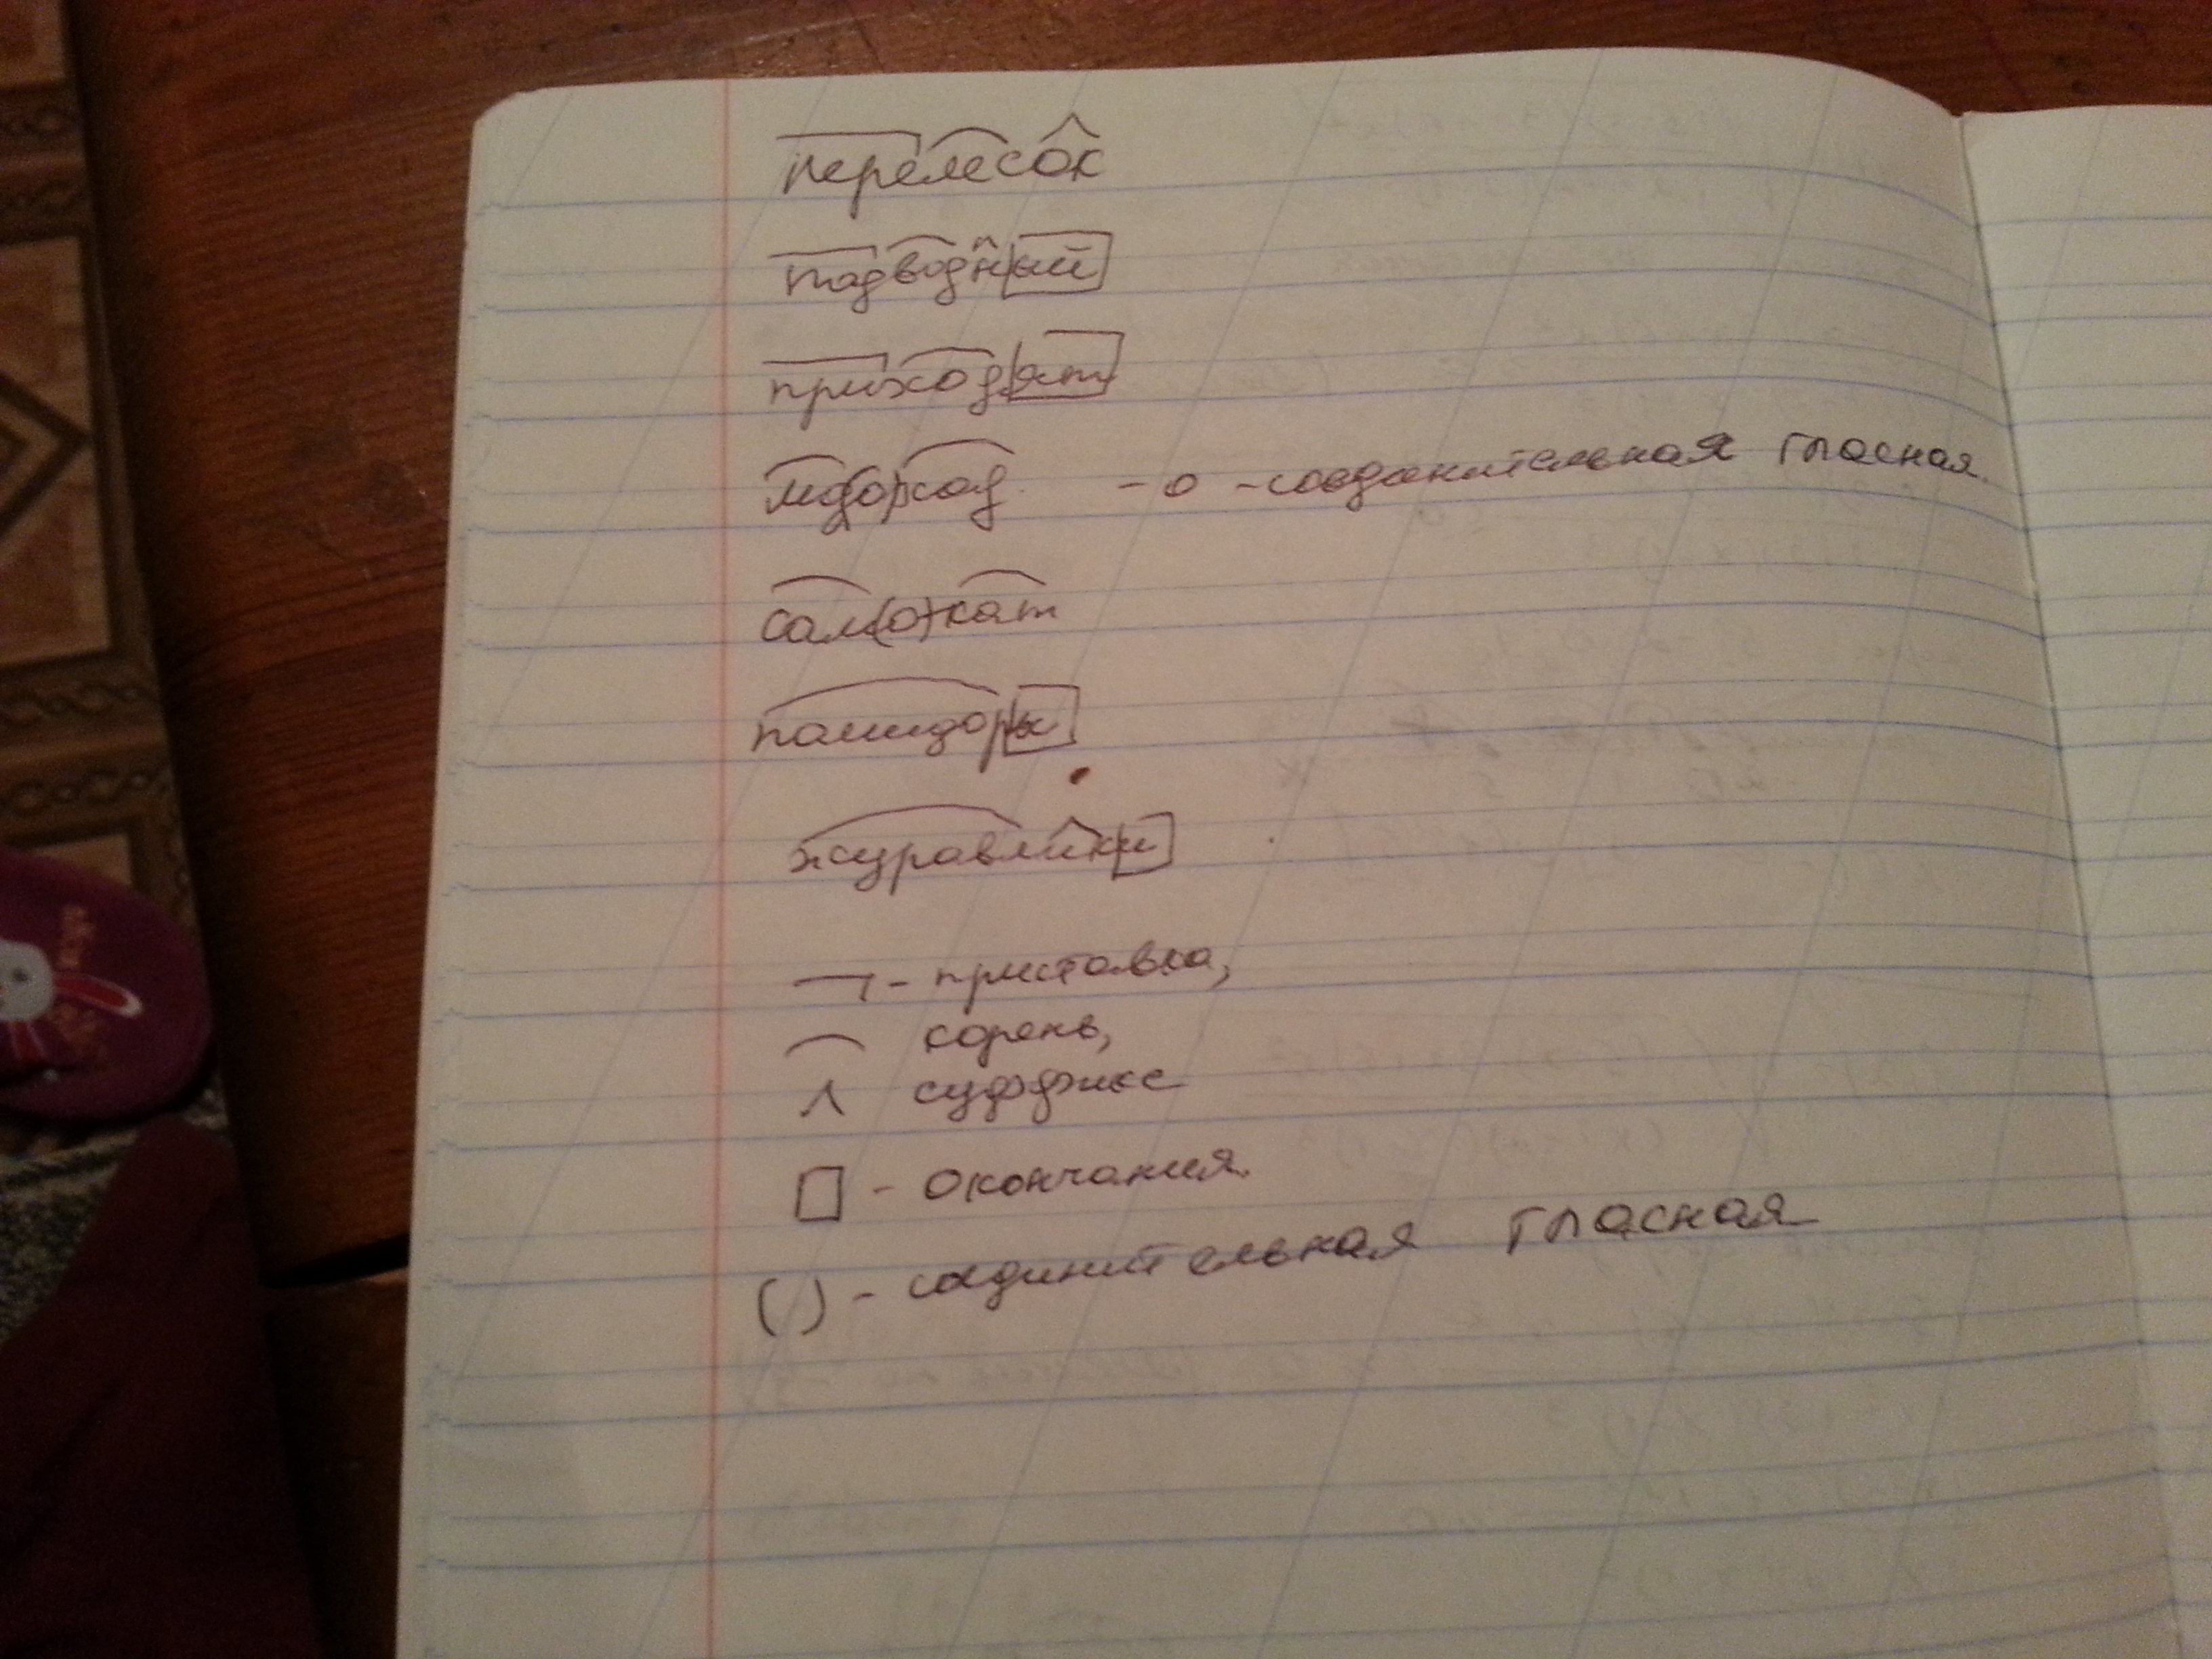 перелесок
подводный
приходят
лед(о)ход - о - соединительная гласная.
сам(о)кат
помидоры
журавлики
- приставка,
корень,
суффикс
- окончания.
( ) - соединительная гласная